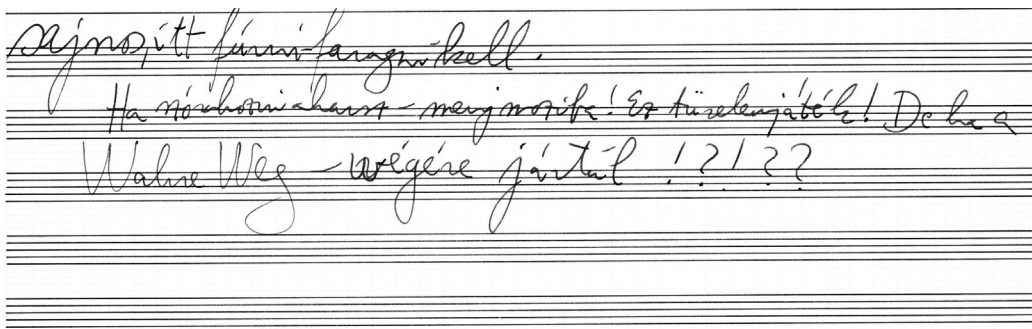 sajnos, itt fúrni-faragni kell.
Ha szórakozni akarsz – menj moziba! Ez türelemjáték! De ha a
Wahre Weg – végére jártál !?!??